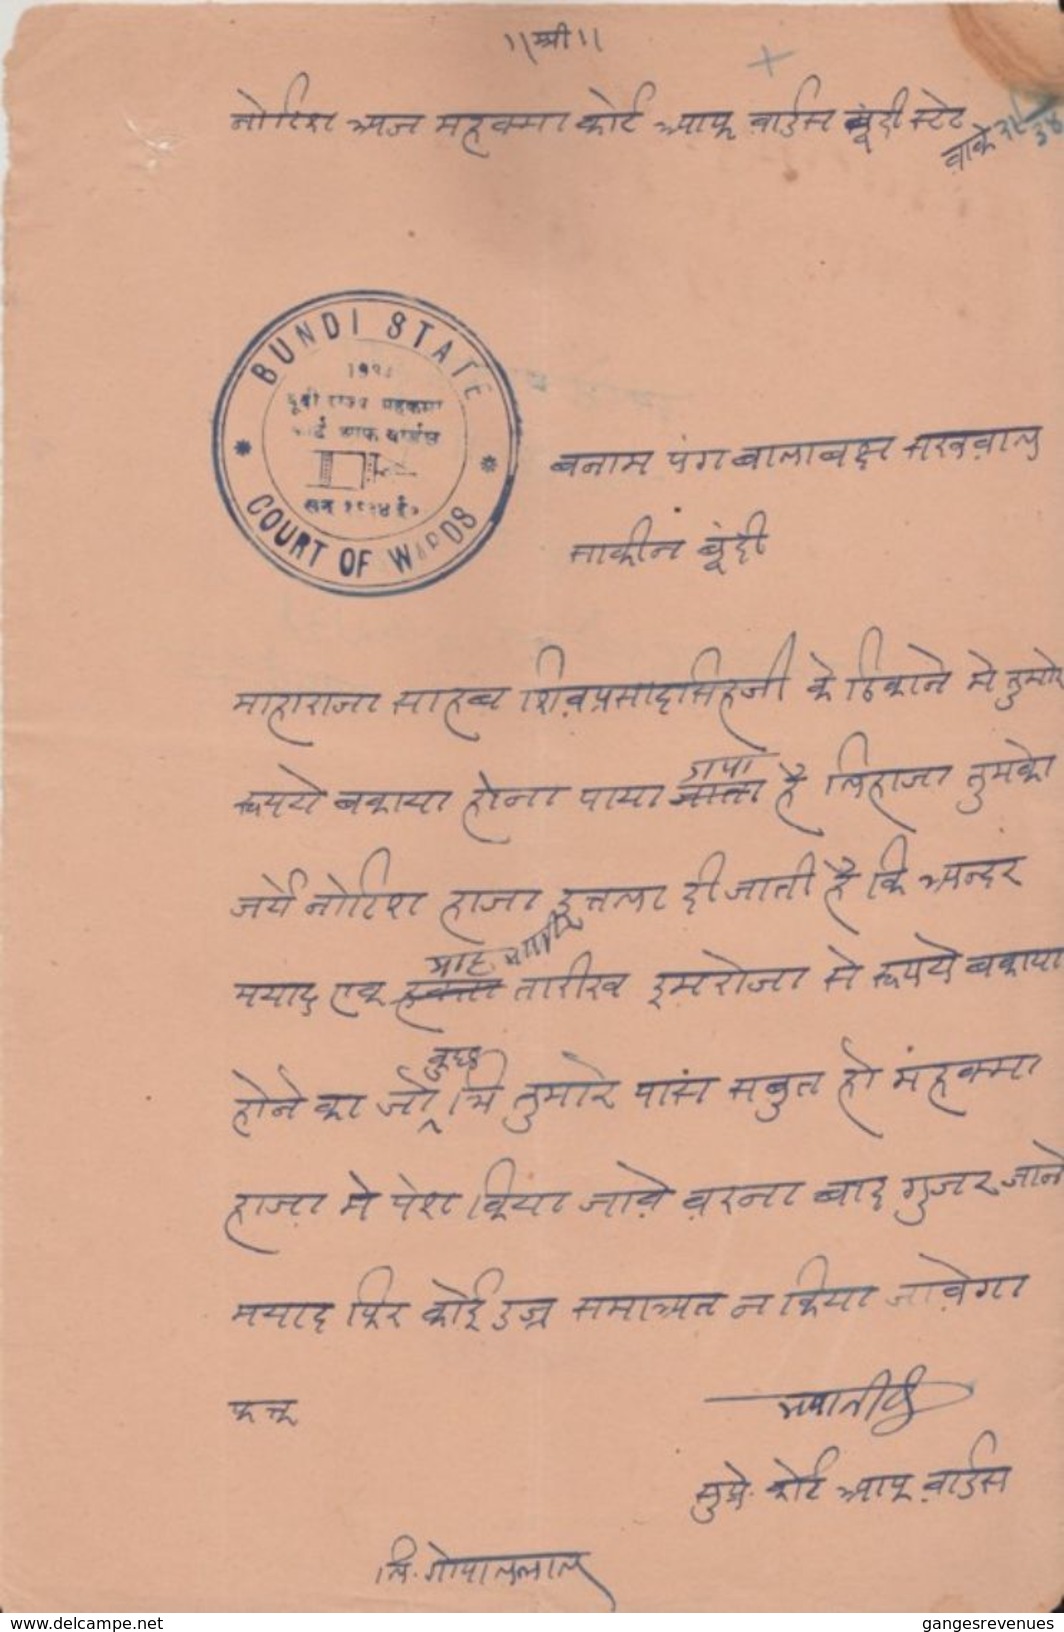 ॥श्री॥
नोटिश अज महक्मा कोर्ट आफ वार्डस बूंदी स्टेट
वाके
BUNDI STATE
बूंदी राज्य महकमा
कोर्ट आफ वार्डस
COURT OF WARDS
बनाम पंग बालाबक्ष मरवबाल
साकीन बूंदी
माहाराजा साहब शिवप्रसादसिंहजी के ठिकाने मे तुमारे
रूपये बकाया होना पाया गया है लिहाजा तुमको
जर्ये नोटिश हाजा इत्तला दी जाती है कि अन्दर
मयाद एक माह तारीख इमरोजा से रूपये बकाया
होने का जो कुछ भि तुमारे पास सबुत हो मंहक्मा
हाजा मे पेश किया जावे वरना बाद गुजर जाने
मयाद फिर कोई उज्र समाअत न किया जावेगा
फक्त
सुप्रे. कोर्ट आफ वार्डस
लि. गोपाललाल
www.delcampe.net
gangesrevenues